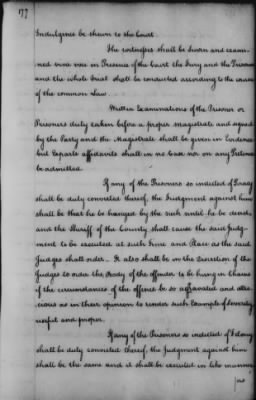 77
Indulgence be shewn to the Court.
The witnesses shall be sworn and exam-
ined viva voce in Presence of the Court the Jury and the Prisoner
and the whole trial shall be conducted according to the course
of the common Law.
Written Examinations of the Prisoner or
Prisoners duly taken before a proper magistrate and signed
by the Party and the Magistrate shall be given in Evidence
but Exparte affidavits shall in no Case nor on any Pretence
be admitted.
If any of the Prisoners so indicted of Piracy
shall be duly convicted thereof, the Judgment against him
shall be that he be hanged by the neck until he be dead,
and the Sheriff of the County shall cause the said Judg-
ment to be executed at such Time and Place as the said
Judges shall order. It also shall be in the Discretion of the
Judges to order the Body of the offender to be hung in Chains
if the circumstances of the offence be so aggravated and atro-
cious as in their opinion to render such Example of Severity
useful and proper.
If any of the Prisoners so indicted of Felony
shall be duly convicted thereof, the Judgment against him
shall be the same and it shall be executed in like manner